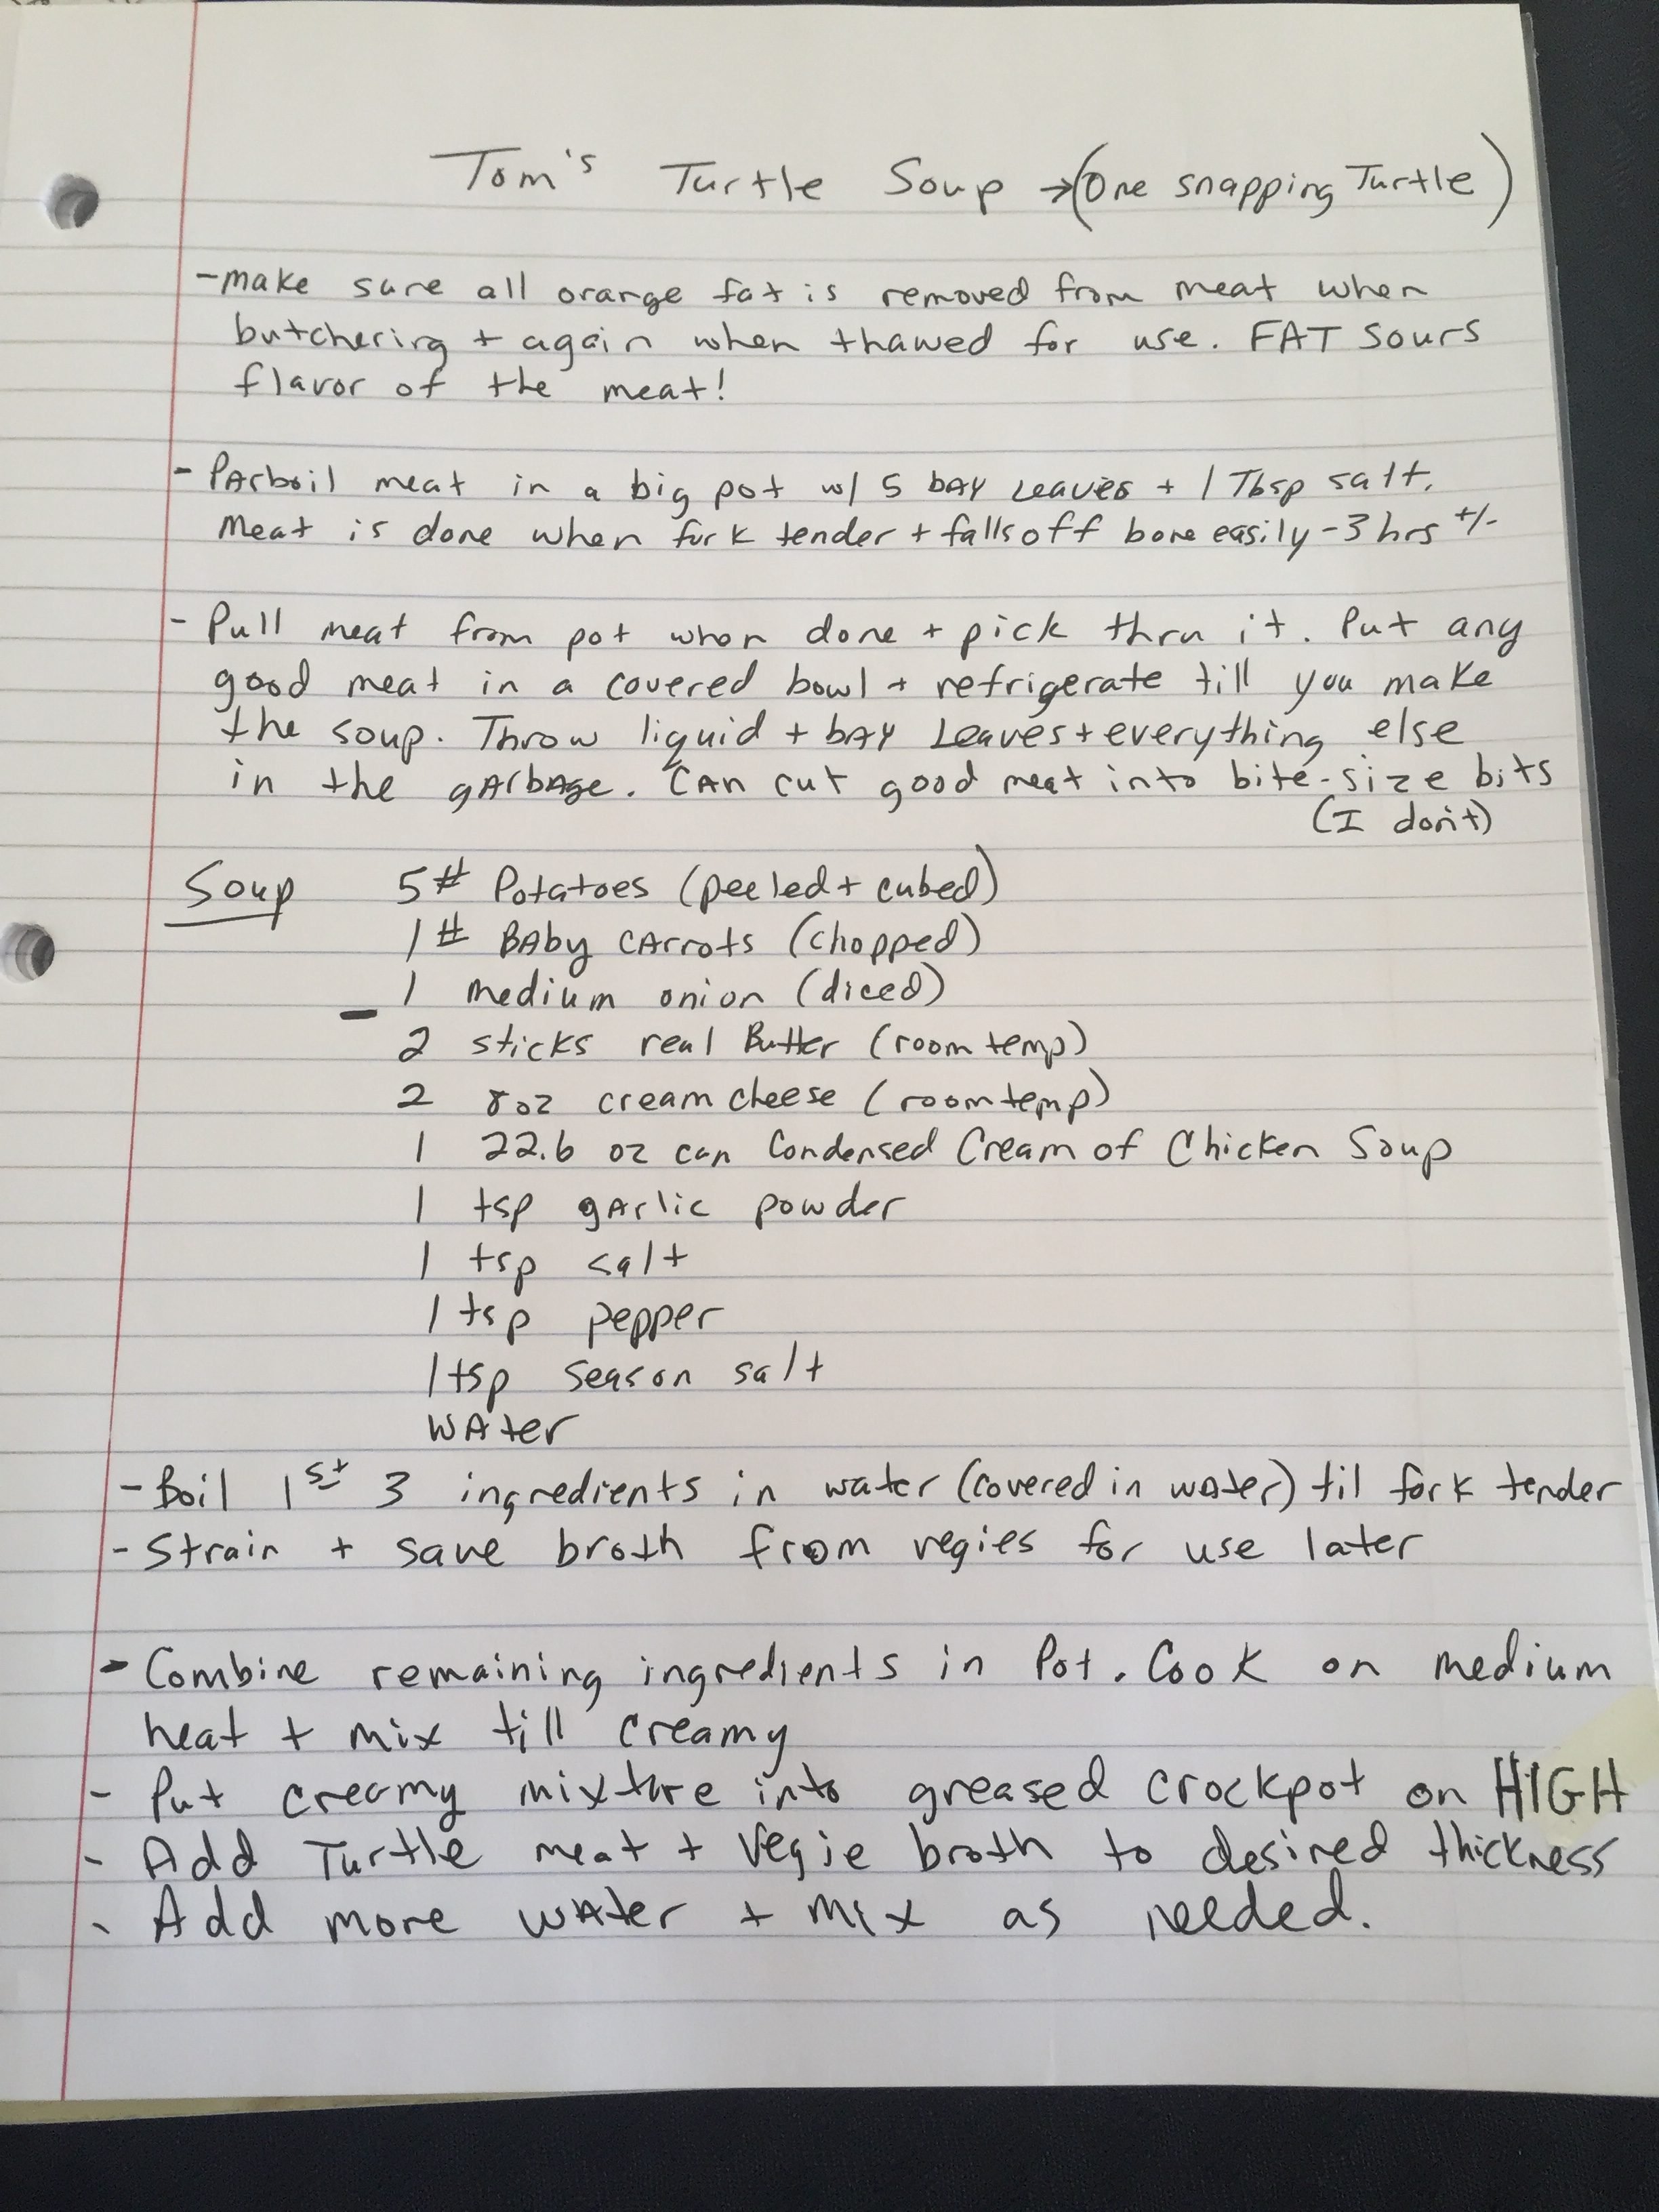 Tom's Turtle Soup → (One snapping Turtle)
- make sure all orange fat is removed from meat when
butchering + again when thawed for use. FAT sours
flavor of the meat!
- Parboil meat in a big pot w/ 5 bay leaves + 1 Tbsp salt.
Meat is done when fork tender + falls off bone easily - 3 hrs +/-
- Pull meat from pot when done + pick thru it. Put any
good meat in a covered bowl + refrigerate till you make
the soup. Throw liquid + bay leaves + everything else
in the garbage. Can cut good meat into bite-size bits
(I don't)
Soup 5# Potatoes (peeled + cubed)
1# Baby carrots (chopped)
1 medium onion (diced)
2 sticks real Butter (room temp)
2 8oz cream cheese (room temp)
1 22.6 oz can Condensed Cream of Chicken Soup
1 tsp garlic powder
1 tsp salt
1 tsp pepper
1 tsp season salt
Water
- Boil 1st 3 ingredients in water (covered in water) til fork tender
- Strain + save broth from vegies for use later
- Combine remaining ingredients in Pot. Cook on medium
heat + mix till creamy
- Put creamy mixture into greased crockpot on HIGH
- Add Turtle meat + Vegie broth to desired thickness
- Add more water + mix as needed.